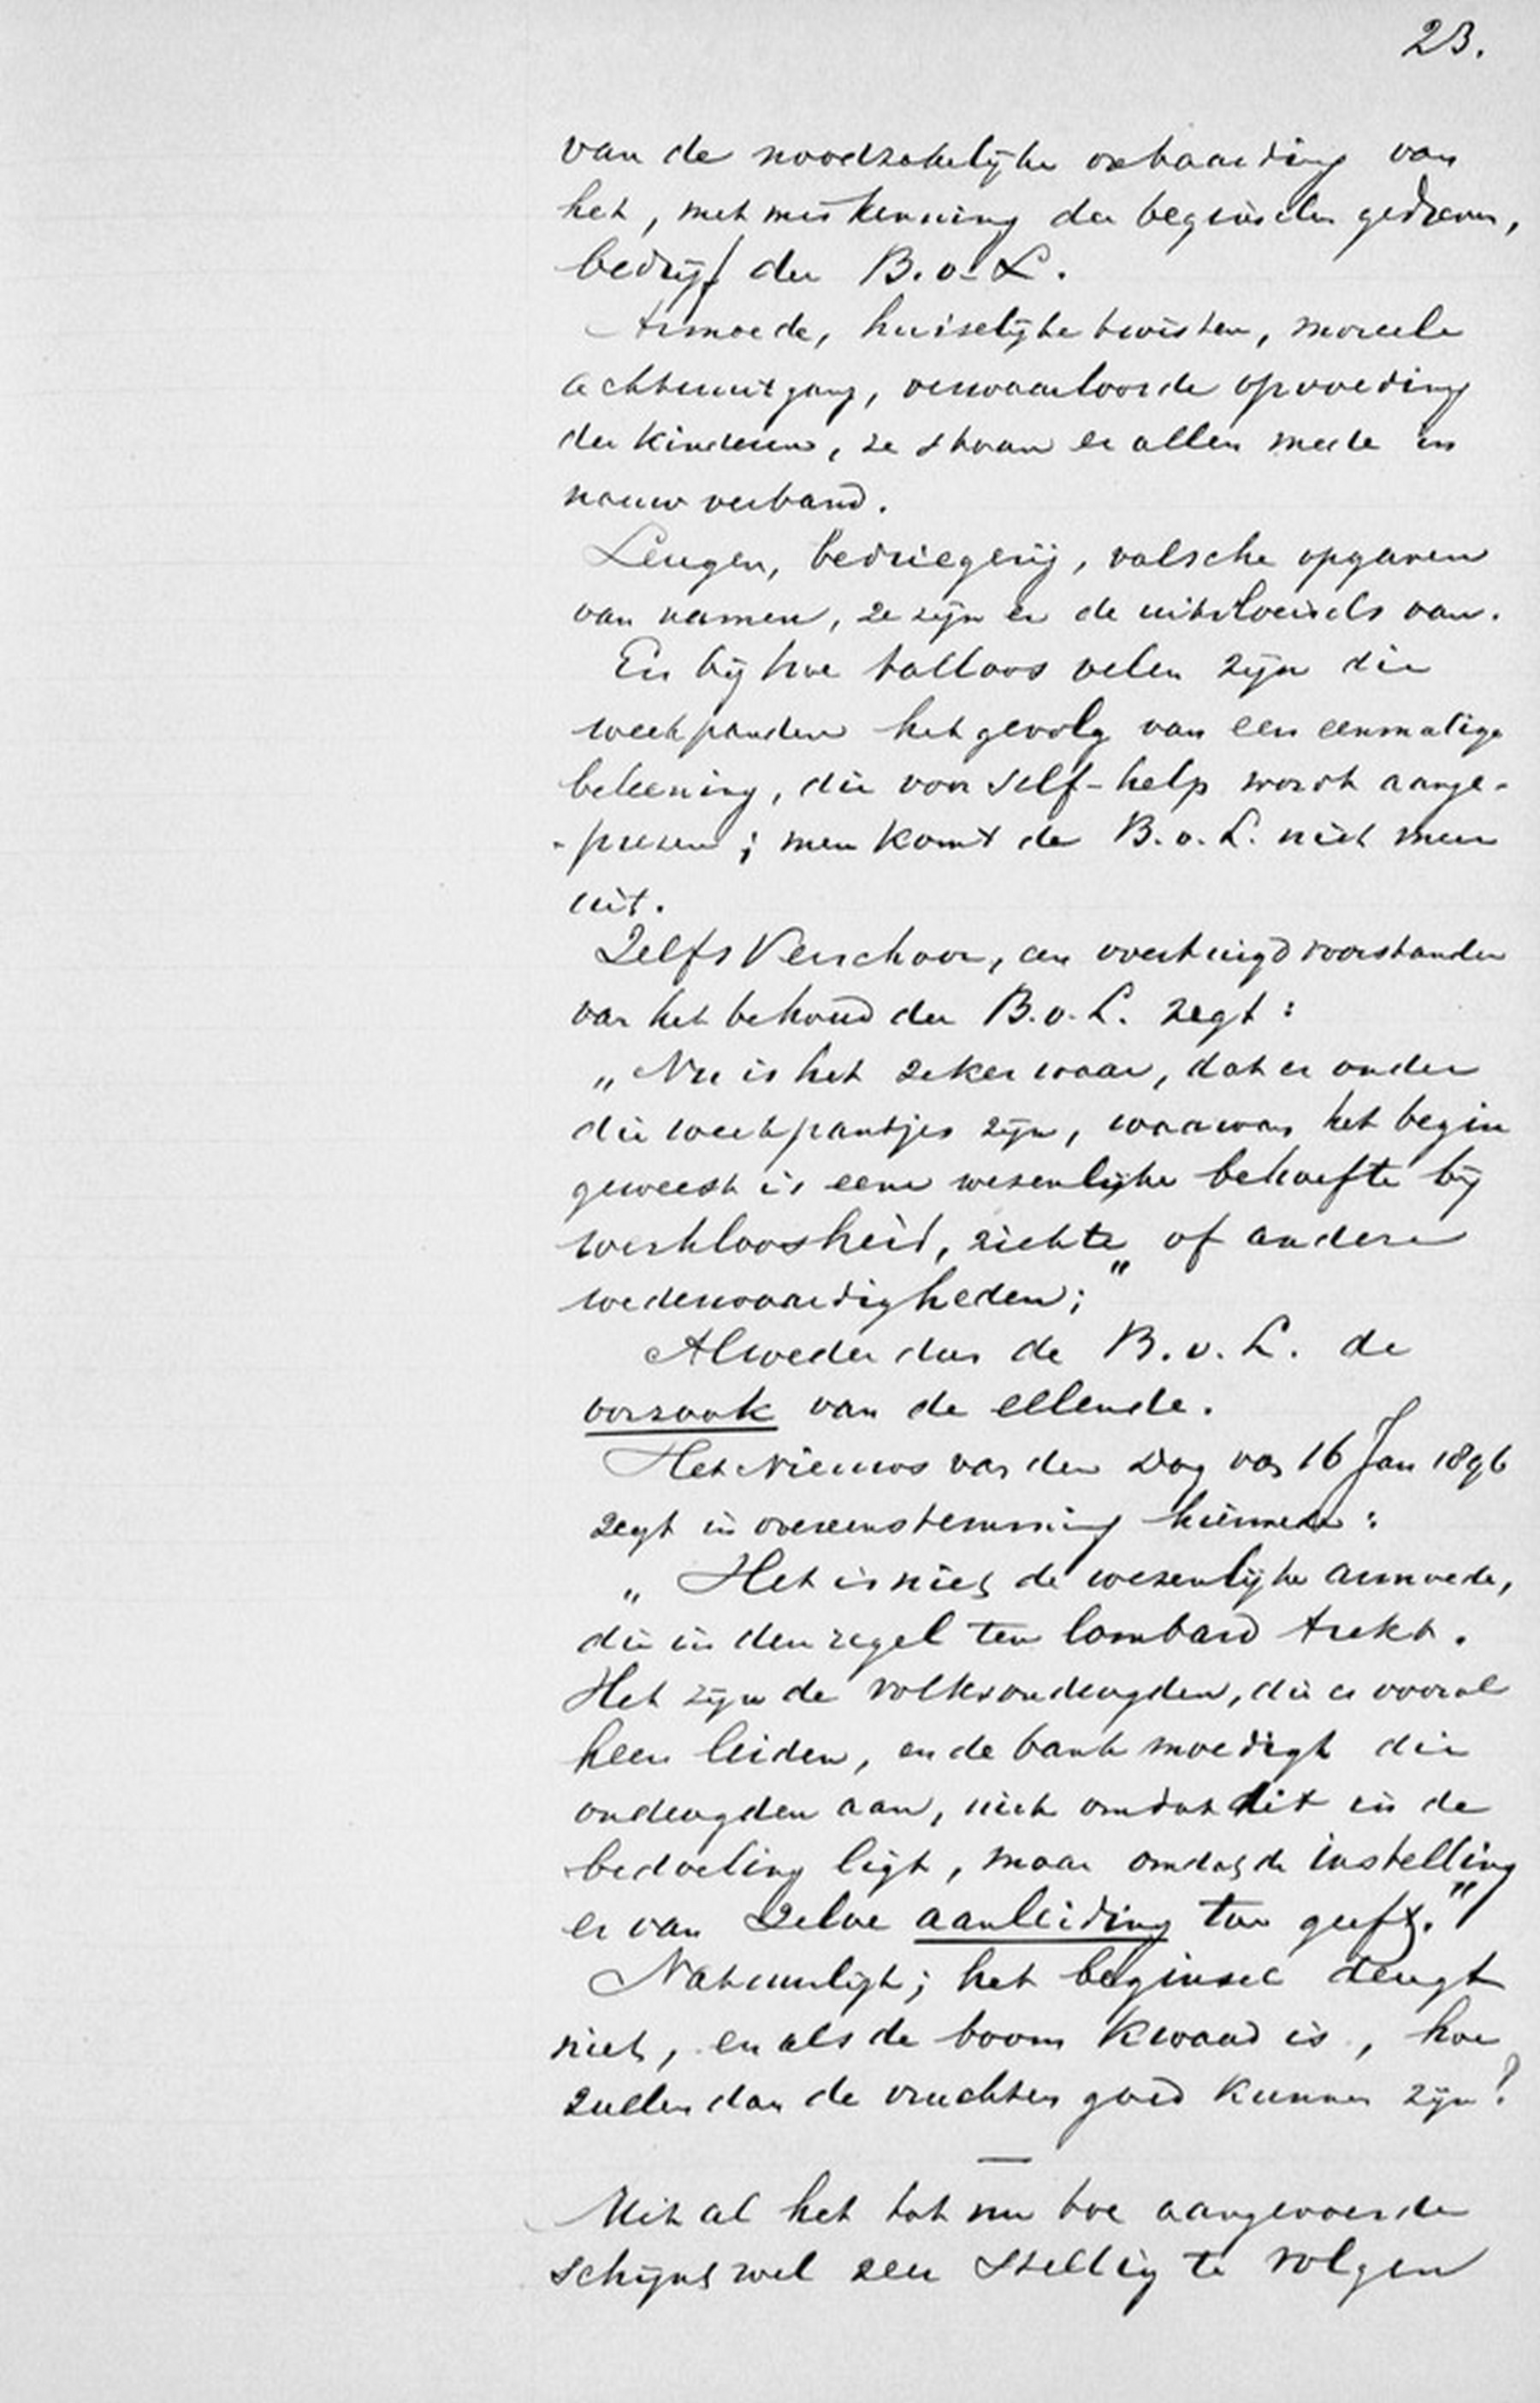 23.
van de noodzakelijke ontaarding van
het, met miskenning der beginselen gedreven,
bedrijf der B. v. L.
Armoede, huiselijke twisten, moreele
achteruitgang, verwaarloosde opvoeding
der kinderen, ze staan er allen mede in
nauw verband.
Leugen, bedriegerij, valsche opgaven
van namen, ze zijn er de uitvloeisels van.
En bij hoe talloos velen zijn die
weekpanden het gevolg van een eenmalige
beleening, die voor self-help wordt aange-
-prezen; men komt de B. v. L. niet meer
uit.
Zelfs Verschoor, een overtuigd voorstander
van het behoud der B. v. L. zegt:
„Nu is het zeker waar, dat er onder
die weekpandjes zijn, waarvan het begin
geweest is eene wezenlijke behoefte bij
werkloosheid, ziekte of andere
wederwaardigheden;"
Alweder dus de B. v. L. de
oorzaak van de ellende.
Het Nieuws van den Dag van 16 Jan 1896
zegt in overeenstemming hiermede:
„Het is niet de wezenlijke armoede,
die in den regel ten lombard trekt.
Het zijn de volksondeugden, die er vooral
heen leiden, en de bank moedigt die
ondeugden aan, niet omdat dit in de
bedoeling ligt, maar omdat de instelling
er van zelve aanleiding toe geeft."
Natuurlijk; het beginsel deugt
niet, en als de boom kwaad is, hoe
zullen dan de vruchten goed kunnen zijn?
—
Uit al het tot nu toe aangevoerde
schijnt wel zeer stellig te volgen